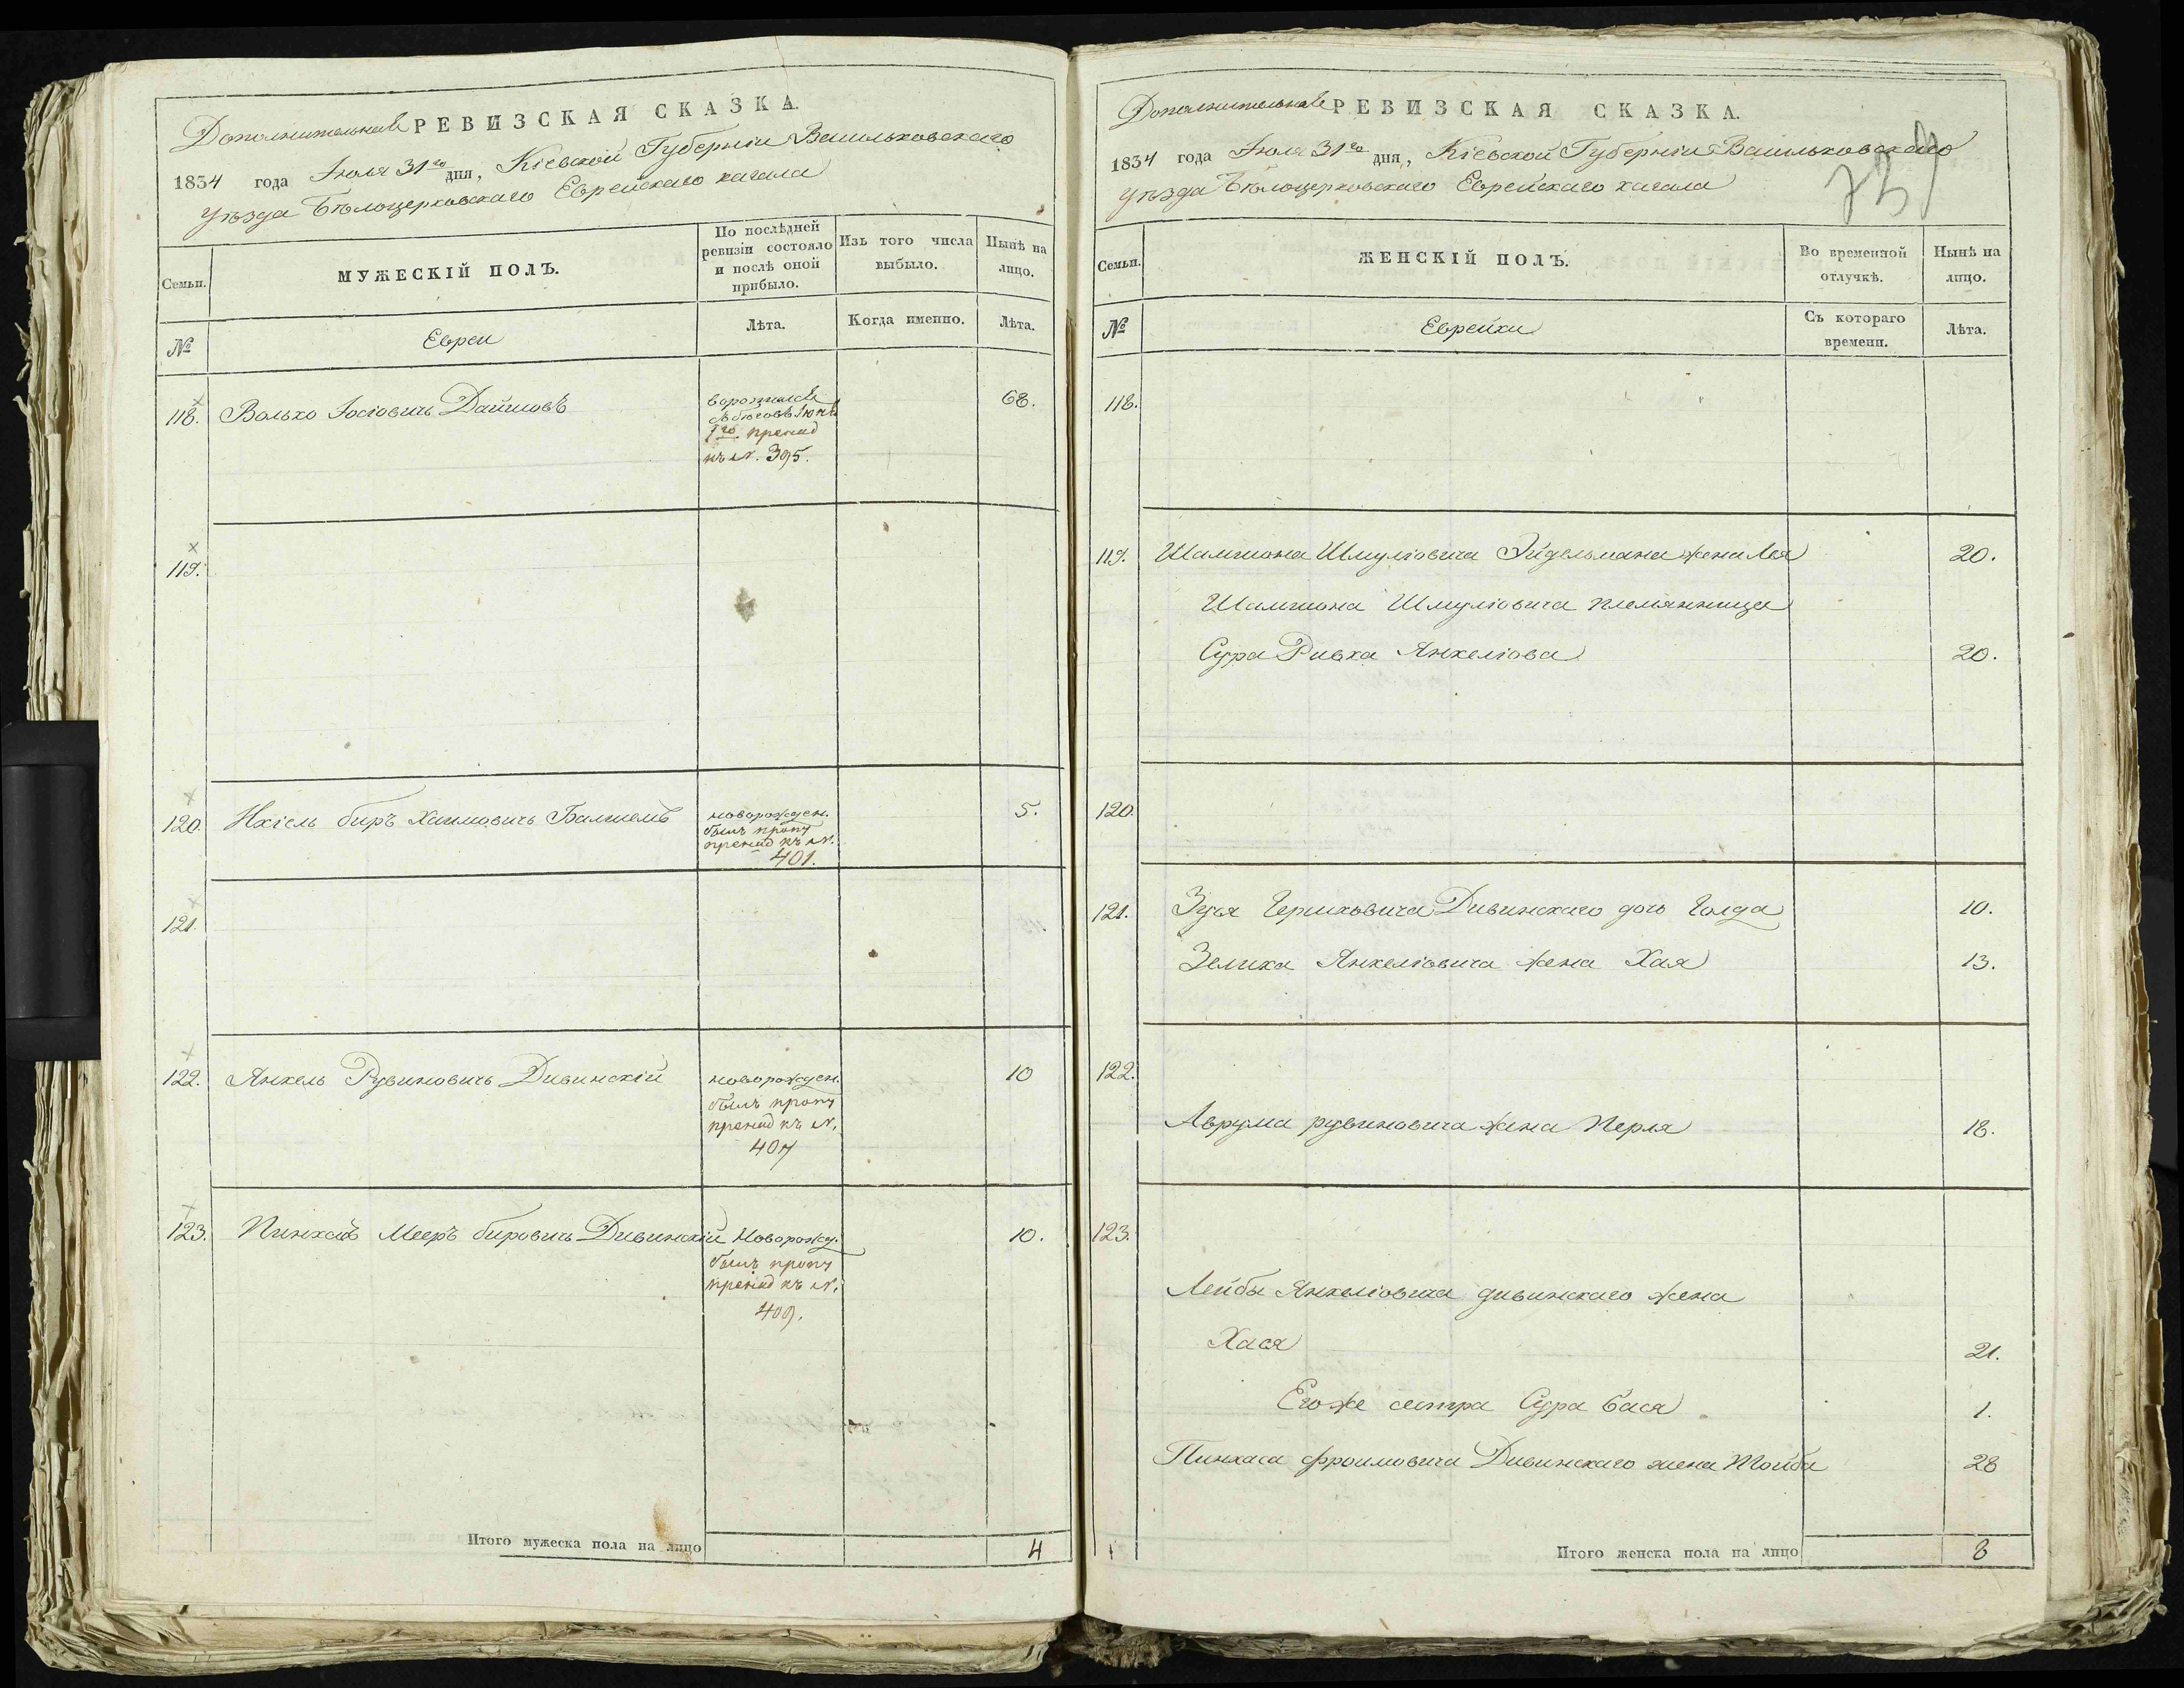 Дополнительная РЕВИЗСКАЯ СКАЗКА.
1834 года Июля 31го дня, Кіевской Губерніи Васильковскаго
уѣзда Бѣлоцерковскаго Еврейскаго кагала
Семьи.
МУЖЕСКІЙ ПОЛЪ.
По послѣдней
ревизіи состояло
и послѣ оной
прибыло.
Изъ того числа
выбыло.
Нынѣ на
лицо.
№
Евреи
Лѣта.
Когда именно.
Лѣта.
118. Волько Іосіовичъ 68.
къ №. 395.
119.
120. Хаимовичъ новорожден. 5.
былъ проп
къ №.
401.
121.
122. Янкель Рувиновичъ Дивинскій новорожден. 10
былъ проп
къ №.
407
123. Пинхасъ Мееръ Бировичъ Дивинскій Новорожд. 10.
былъ проп
къ №.
409.
Итого мужеска пола на лицо 4
Дополнительная РЕВИЗСКАЯ СКАЗКА.
1834 года Июля 31го дня, Кіевской Губерніи Васильковскаго
уѣзда Бѣлоцерковскаго Еврейскаго кагала
Семьи.
ЖЕНСКІЙ ПОЛЪ.
Во временной
отлучкѣ.
Нынѣ на
лицо.
№
Еврейки
Съ котораго
времени.
Лѣта.
118.
119. Шамшона Шмуліовича Эйдельмана жена Лея 20.
Шамшона Шмуліовича племянница
Сура Ривка Янкеліова 20.
120.
121. Зуся Гершковича Дивинскаго дочь Голда 10.
Зелика Янкеліовича жена Хая 13.
122.
Аврума рувиновича жена Перля 18.
123.
Лейбы Янкеліовича дивинскаго жена
Хася 21.
Егоже сестра Сура Бася 1.
Пинхаса Фроимовича Дивинскаго жена Тойба 28
Итого женска пола на лицо 8